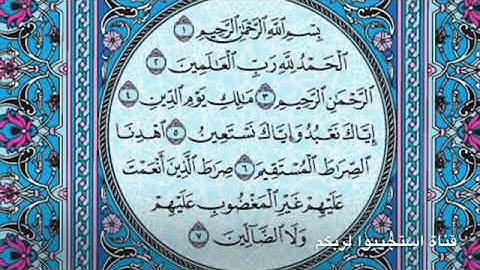 بِسْمِ اللَّهِ الرَّحْمَٰنِ الرَّحِيمِ ١
الْحَمْدُ لِلَّهِ رَبِّ الْعَالَمِينَ ٢
الرَّحْمَٰنِ الرَّحِيمِ ٣ مَالِكِ يَوْمِ الدِّينِ ٤
إِيَّاكَ نَعْبُدُ وَإِيَّاكَ نَسْتَعِينُ ٥ اهْدِنَا
الصِّرَاطَ الْمُسْتَقِيمَ ٦ صِرَاطَ الَّذِينَ أَنْعَمْتَ
عَلَيْهِمْ غَيْرِ الْمَغْضُوبِ عَلَيْهِمْ
وَلَا الضَّالِّينَ ٧
قناة استجيبوا لربكم